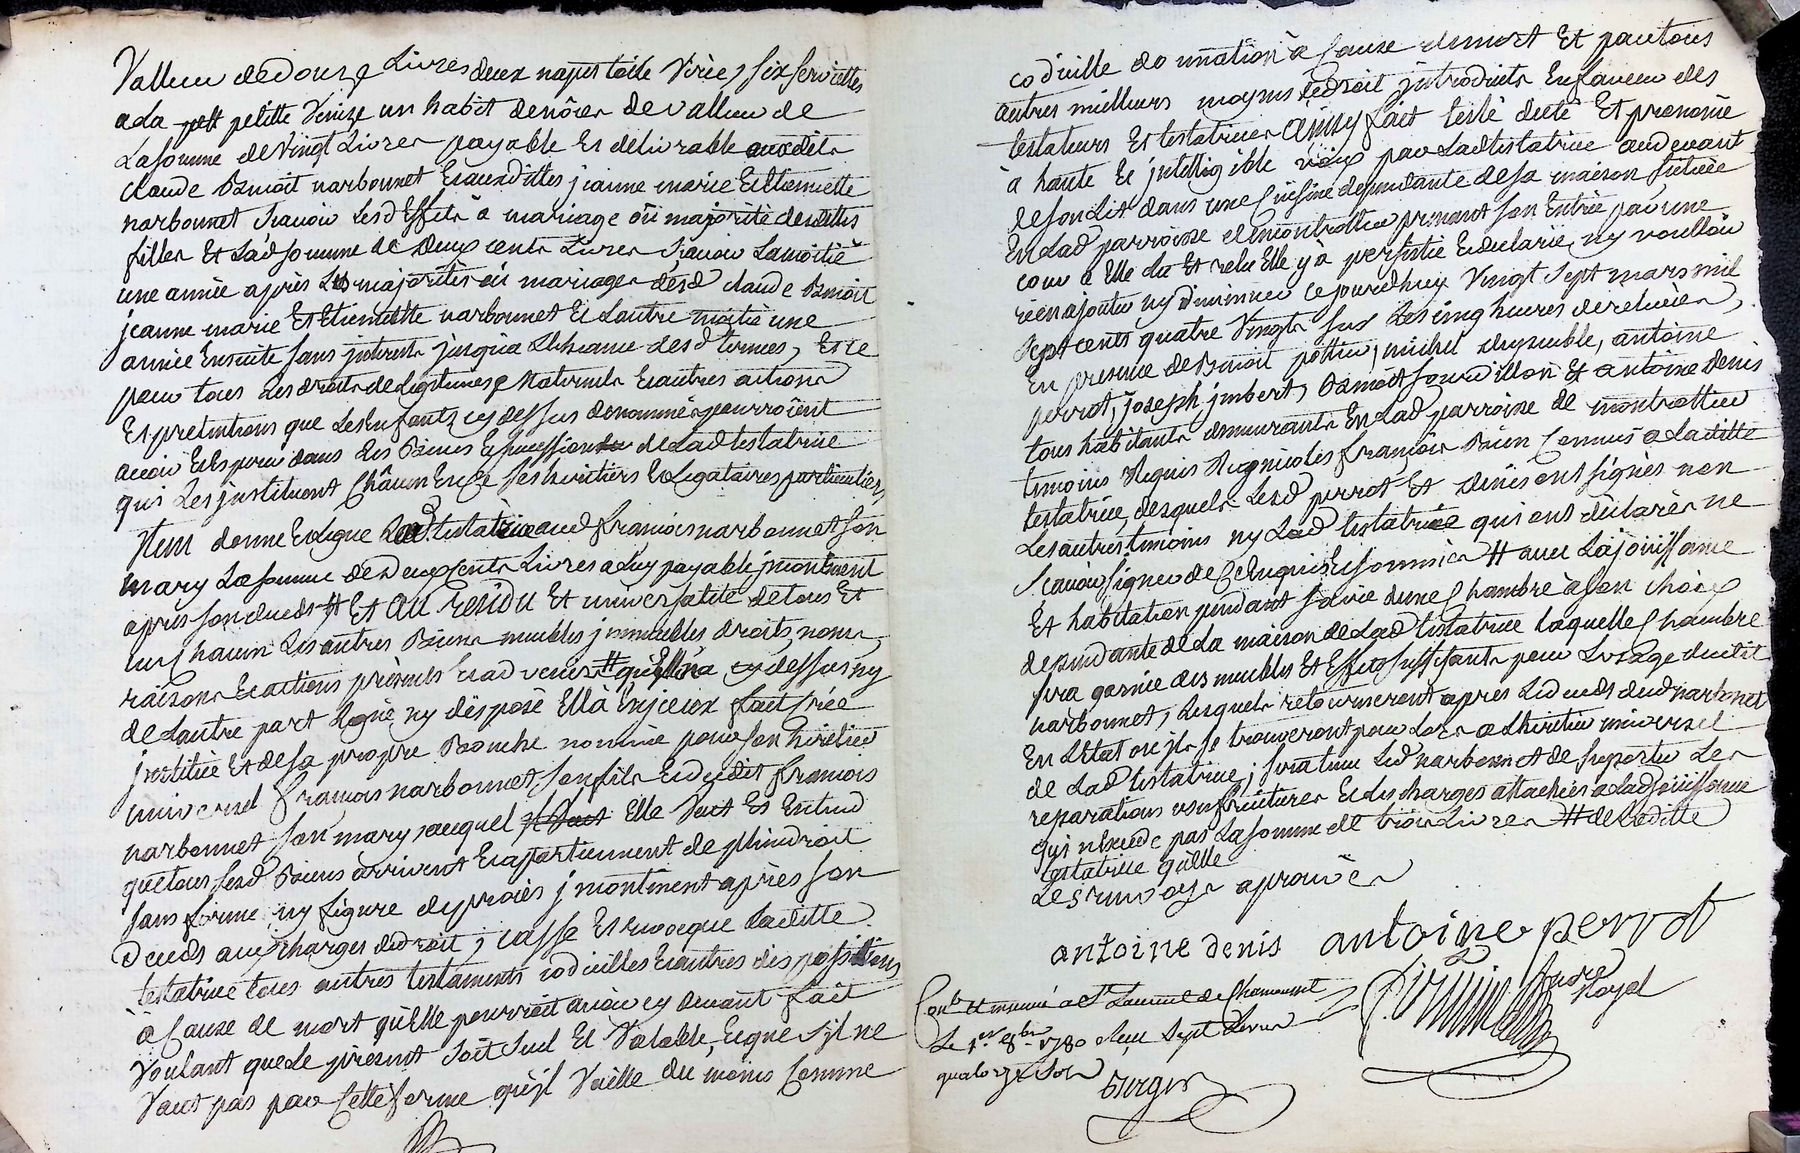 Valleur de douze Livres deux napes toile Virée, six serviettes
a la pett petitte Venize un habit de nôces de valleur de
La somme de Vingt Livres payable et delivrable auxdits
claude Benoit narbonnet et auxdittes jeanne marie et Etiennette
narbonnet scavoir lesd Effets à mariage où majorité desdittes
filles et Lad somme de deux cents Livres scavoir La moitié
une année après Les majorités où mariages desd claude Benoit
jeanne marie Et Etiennette narbonnet et Lautre moitié une
année Ensuite sans interets jusqua Lecheance desd termes, Et ce
pour tous Les droits de Legitimes Maternels Et autres actions
Et pretentions que Les Enfants cy dessus denommés pourroient
avoir Et esperer dans Les Biens Et succession de Lad testatrice
qui Les jnstituent Châcun En ce ses heritiers Et Legataires particuliers,
jtem donne Et Legue Lad testatrice aud françois narbonnet son
mary La somme de deux cents Livres a Luy payable jmontinent
apres son deceds # Et Au residu Et universalité de tous Et
un Chacun Les autres Biens meubles jmmeubles, droits, noms,
raisons Et actions présents Et advenir # qu'Elle n'a cy dessus ny
de Lautre part Legué ny disposé Ella Enjceux fait créé
jnstitué Et de sa propre Bouche nommé pour son heritier
universel françois narbonnet son fils Et dudit françois
narbonnet son mary, auquel il Vaut Elle Veut Et Entend
que tous sesd Biens arrivent Et apartiennent de plein droit
sans forme ny figure de procès jmontinent après son
deceds aux charges de droit, casse Et revoque Laditte
testatrice tous autres testaments codicilles Et autres dispositions
à Cause de mort qu'Elle pourroit avoir cy devant fait
Voulant que Le present soit seul Et Valable, Et que s'jl ne
Vaut pas par Cette forme qu'jl Vaille du moins Comme
codicille donnation à Cause de mort Et par tous
autres meilleurs moyens de droit jntroduits En faveur des
testateurs Et testatrices Ainsy fait testé dicté Et prononcé
à haute Et jntelligible voix par Lad testatrice au devant
de son Lit dans une Cuisine dependante de sa maison scituée
En Lad parroisse de montrottier prenant son Entrée par une
cour à Elle Lu Et relu Elle y à persisté Et declaré, ny voulloir
rien ajouter ny diminuer Ce jourdhuy Vingt sept mars mil
sept cents quatre Vingts sur Les cinq heures de relevées,
En presence de Benoit pottier, michel dupeuble, antoine
perrot, joseph jmbert, Benoit jourdillon Et antoine Denis
tous habitants demeurants En Lad parroisse de montrottier
temoins Requis Regnicoles françois Bien Connus a Laditte
testatrice, desquels Lesd perrot Et denis ont signés non
Les autres temoins ny Lad testatrice qui ont déclarés ne
scavoir signer de Ce Enquis Et sommés # avec La joüissance
Et habitation pendant sa vie dune Chambre à son choix
dependante de La maison de Lad testatrice laquelle Chambre
sera garnie des meubles Et Effets suffisants pour Lusage dudit
narbonnet, Lesquels retourneront apres Le deceds dud narbonnet
En L'Etat ou jls se trouveront pour Lors a Lheritier universel
de Lad testatrice; sera tenu Led narbonnet de suporter Les
reparations usufruitieres Et Les charges attachées a Lad joüissance
qui n'Excede pas La somme de trois Livres # de Laditte
testatrice qu'elle
Les renvoys aprouvés
antoine denis antoine perrot
Conlé et insinué a St Laurent de Chamousset
Le 1er 8bre 1780 Reçu Sept Livres
quatorze sols